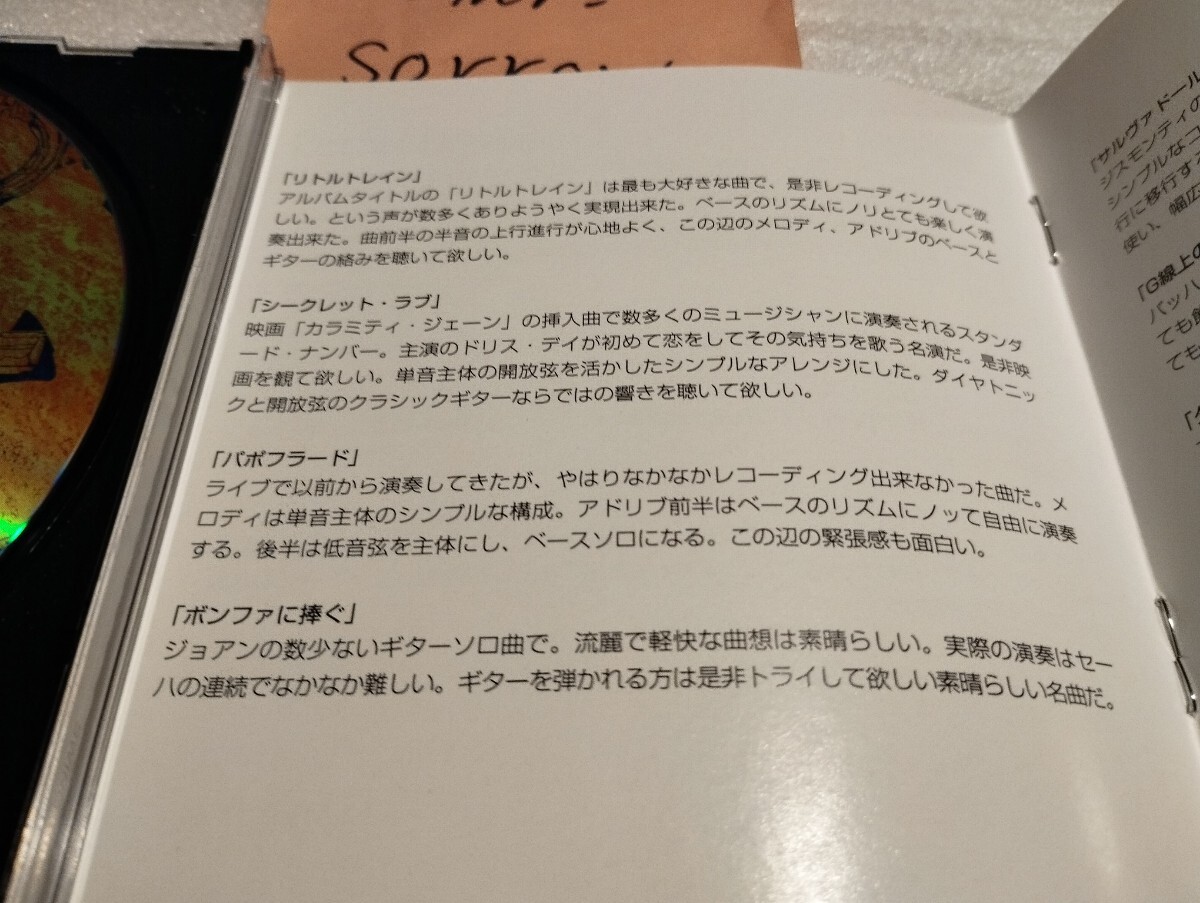 sorrow
「リトルトレイン」
アルバムタイトルの「リトルトレイン」は最も大好きな曲で、是非レコーディングして欲
しい。という声が数多くありようやく実現出来た。ベースのリズムにノリとても楽しく演
奏出来た。曲前半の半音の上行進行が心地よく、この辺のメロディ、アドリブのベースと
ギターの絡みを聴いて欲しい。
「シークレット・ラブ」
映画「カラミティ・ジェーン」の挿入曲で数多くのミュージシャンに演奏されるスタンダ
ード・ナンバー。主演のドリス・デイが初めて恋をしてその気持ちを歌う名演だ。是非映
画を観て欲しい。単音主体の開放弦を活かしたシンプルなアレンジにした。ダイヤトニッ
クと開放弦のクラシックギターならではの響きを聴いて欲しい。
「バポフラード」
ライブで以前から演奏してきたが、やはりなかなかレコーディング出来なかった曲だ。メ
ロディは単音主体のシンプルな構成。アドリブ前半はベースのリズムにノッて自由に演奏
する。後半は低音弦を主体にし、ベースソロになる。この辺の緊張感も面白い。
「ボンファに捧ぐ」
ジョアンの数少ないギターソロ曲で。流麗で軽快な曲想は素晴らしい。実際の演奏はセー
ハの連続でなかなか難しい。ギターを弾かれる方は是非トライして欲しい素晴らしい名曲だ。
「サルヴァドール
ジスモンティの
シンプルなコ
行に移行す
使い、幅広
「G線上の
バッハ
ても
ても